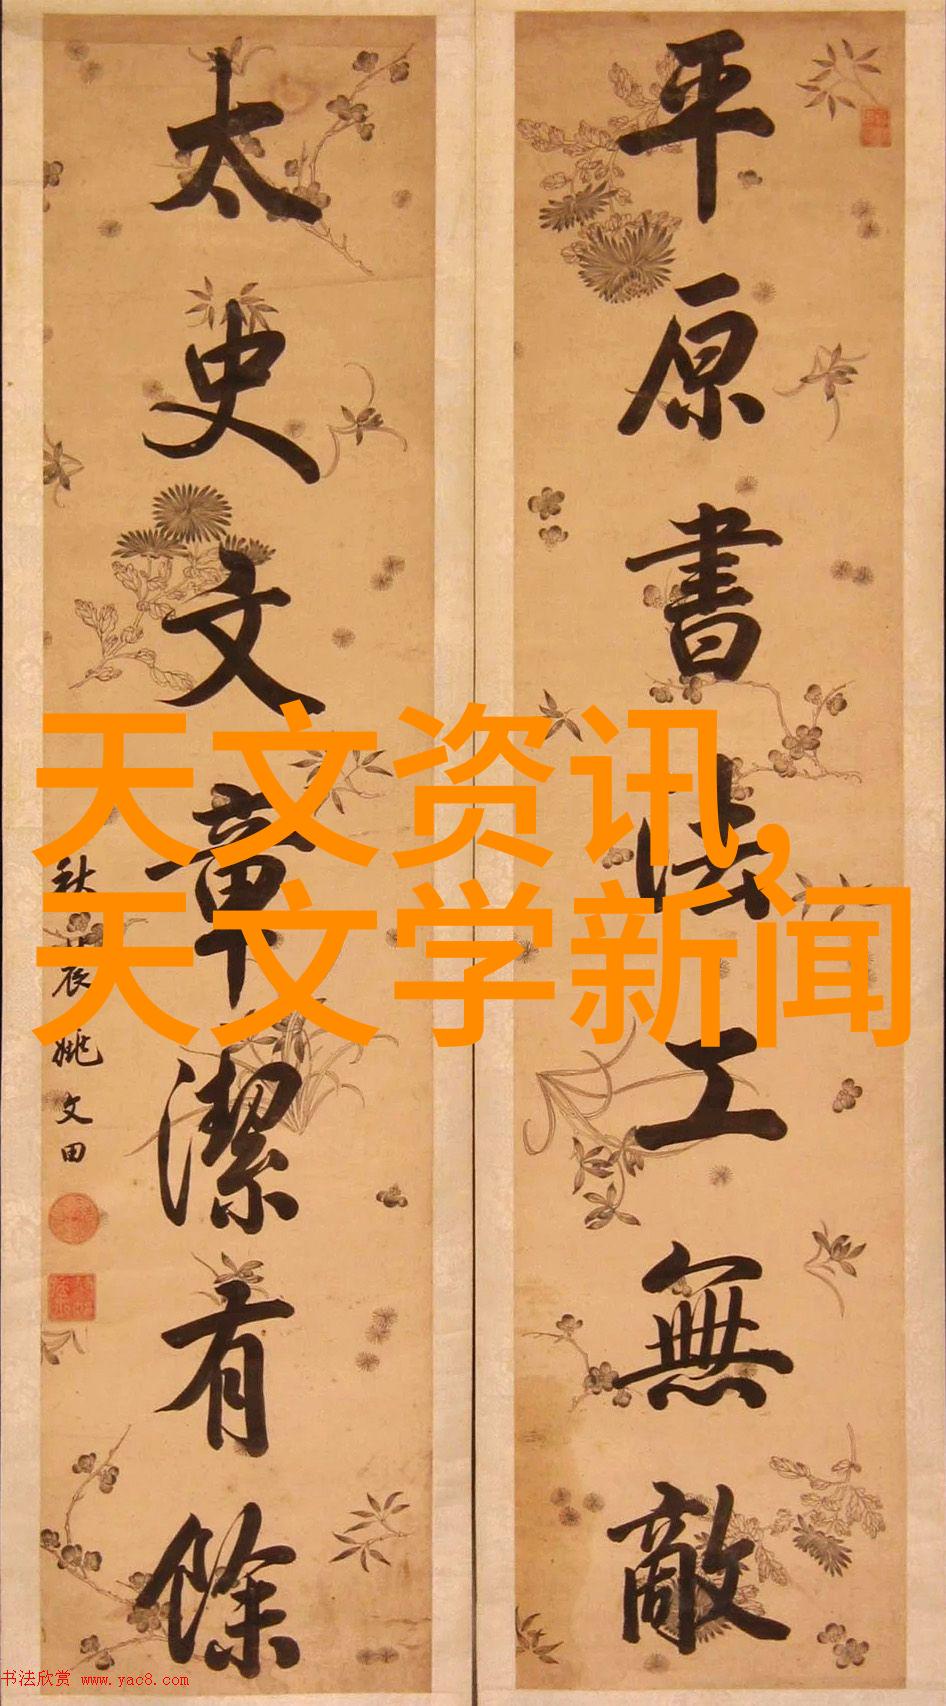 平原書法工無敵
太史文章潔有餘
秋辰姚文田
天文资讯,
天文学新闻
书法欣赏 www.yac8.com